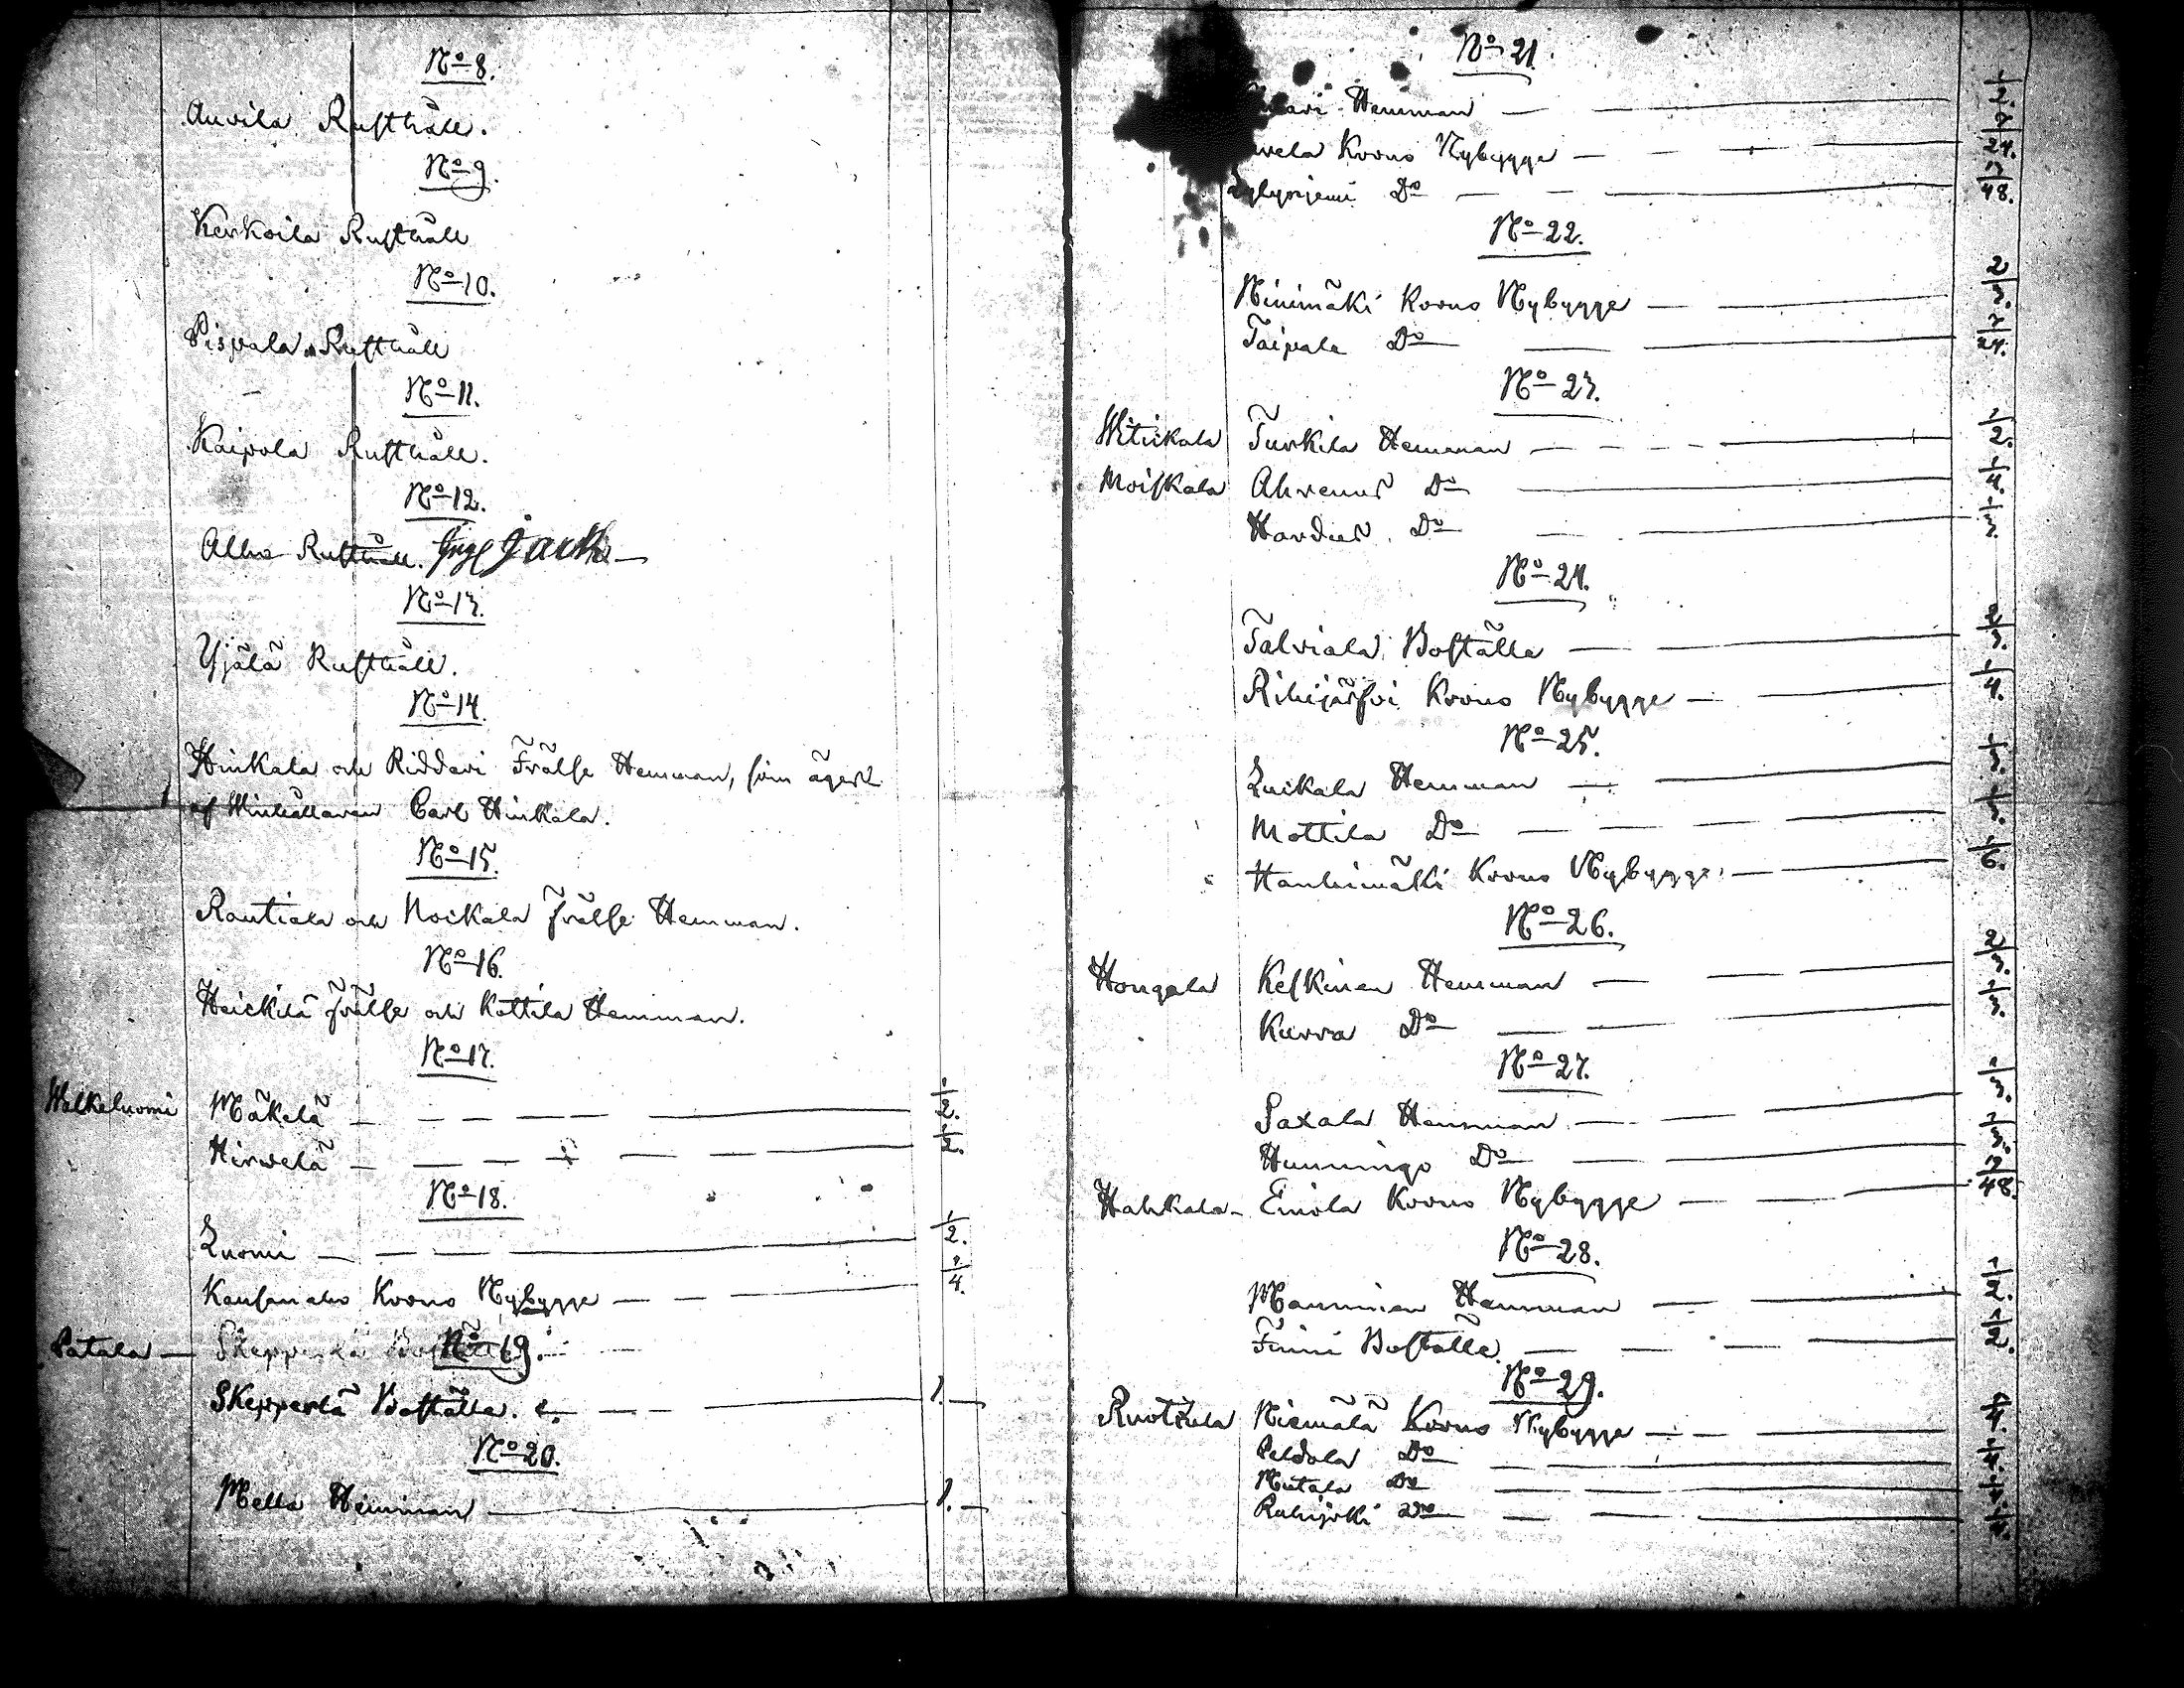 No 8.
Anvila Rusthåll.
No 9.
Kerkoila Rusthåll
No 10.
Pispala Rusthåll
No 11.
Kaipola Rusthåll.
No 12.
Alho Rusthåll.
No 13.
Yjälä Rusthåll.
No 14.
Hinkala och Riddari Frälse Hemman, som äges
af Carl Hinkala.
No 15.
Rautiala och Noikala Frälse Hemman.
No 16.
Heickilä Frälse och Kottila Hemman.
No 17.
Walkeluomi Mäkelä — 1/2.
Hirvelä — 1/2.
No 18.
Luomi — 1/2.
Kausenaho Krono Nybygge — 1/4.
No 19.
Patala — Skepperlä
Skepperlä Boställe. — 1.
No 20.
Mella Hemman — 1.
No 21.
Hemman — 1/2.
Krono Nybygge — 7/24.
Do — 7/48.
No 22.
Ninimäki Krono Nybygge — 2/3.
Taipale Do — 7/24.
No 23.
Witickala Turkila Hemman — 1/2.
Moiskala Ahrenus Do — 1/4.
Hardus Do — 1/3.
No 24.
Talviala Boställe — 2/3.
Rihijärfvi Krono Nybygge — 1/4.
No 25.
Luikala Hemman — 1/3.
Mottila Do — 1/3.
Hanhimäki Krono Nybygge — 1/6.
No 26.
Hongala Keskinen Hemman — 2/3.
Kurra Do — 1/3.
No 27.
Saxala Hemman — 1/3.
Hunningo Do — 1/3.
Hahkala — Einola Krono Nybygge — 7/48.
No 28.
Manninen Hemman — 1/2.
Finni Boställe — 1/2.
No 29.
Ruotsula Niemälä Krono Nybygge — 1/4.
Peldola Do — 1/4.
Mutala Do — 1/4.
Ruhijoki Do — 1/4.